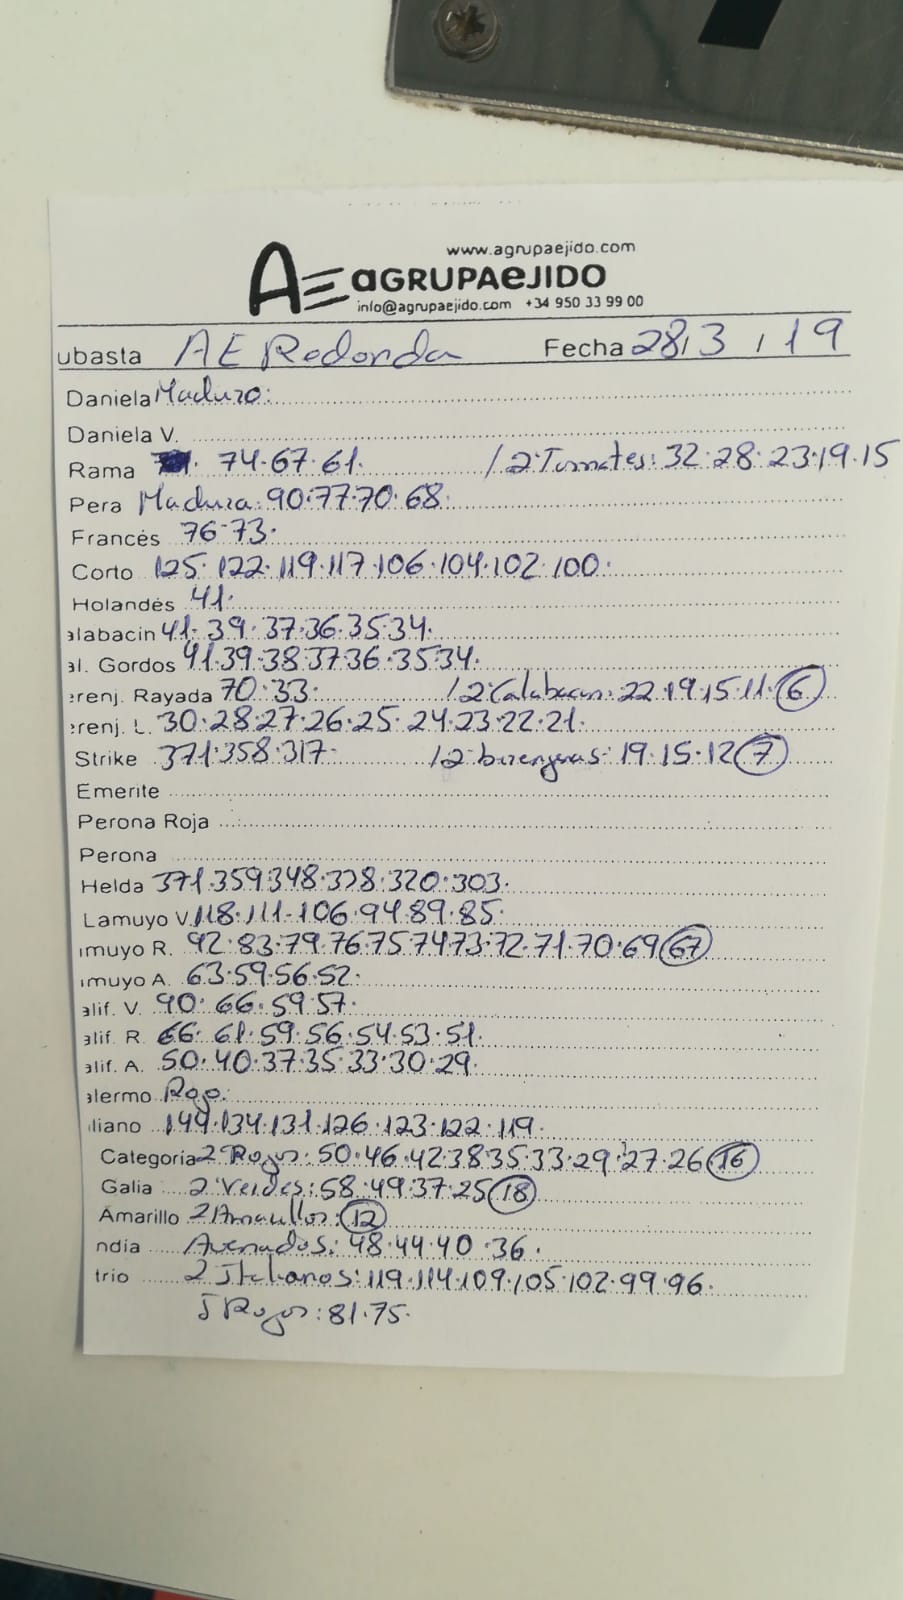 www.agrupaejido.com
AE aGRUPAeJIDO
info@agrupaejido.com +34 950 33 99 00
ubasta AE Redonda Fecha 28,3,19
Daniela Maduro:
Daniela V.
Rama 74.67.61. / 2ªTomates: 32.28.23.19.15
Pera Madura: 90.77.70.68.
Francés 76-73.
Corto 125.122.119.117.106.104.102.100.
Holandés 41.
alabacin 41.39.37.36.35.34.
al. Gordos 41.39.38.37.36.35.34.
erenj. Rayada 70.33. / 2ªCalabacin: 22.19.15.11.6
erenj. L. 30.28.27.26.25.24.23.22.21.
Strike 371.358.317. / 2ªberenjenas: 19.15.12 7
Emerite
Perona Roja
Perona
Helda 371.359.348.328.320.303.
Lamuyo V. 118.111-106.94.89.85.
muyo R. 92.83.79.76.75.74.73.72.71.70.69 67
muyo A. 63.59.56.52.
alif. V. 90.66.59.57.
alif. R. 66.61.59.56.54.53.51.
alif. A. 50.40.37.35.33.30.29.
alermo Rojo:
liano 149.134.131.126.123.122.119.
Categoría 2ªRojos: 50.46.42.38.35.33.29.27.26 16
Galia 2ªVerdes: 58.49.37.25 18
Amarillo 2ªAmarillos: 12
ndia Asurados: 48.44.40.36.
trio 2ªItalianos: 119.114.109.105.102.99.96.
J Rojos: 81.75.